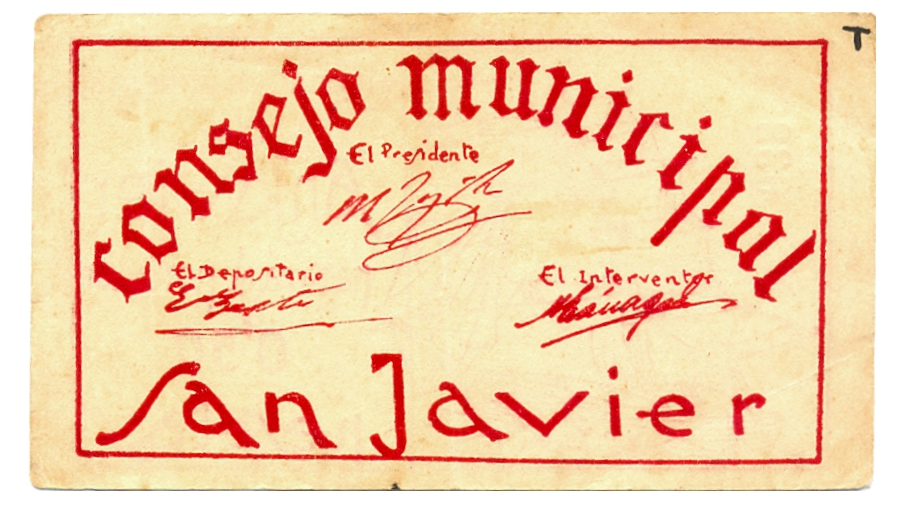 consejo municipal
El Presidente
El Depositario
El Interventor
San Javier
T